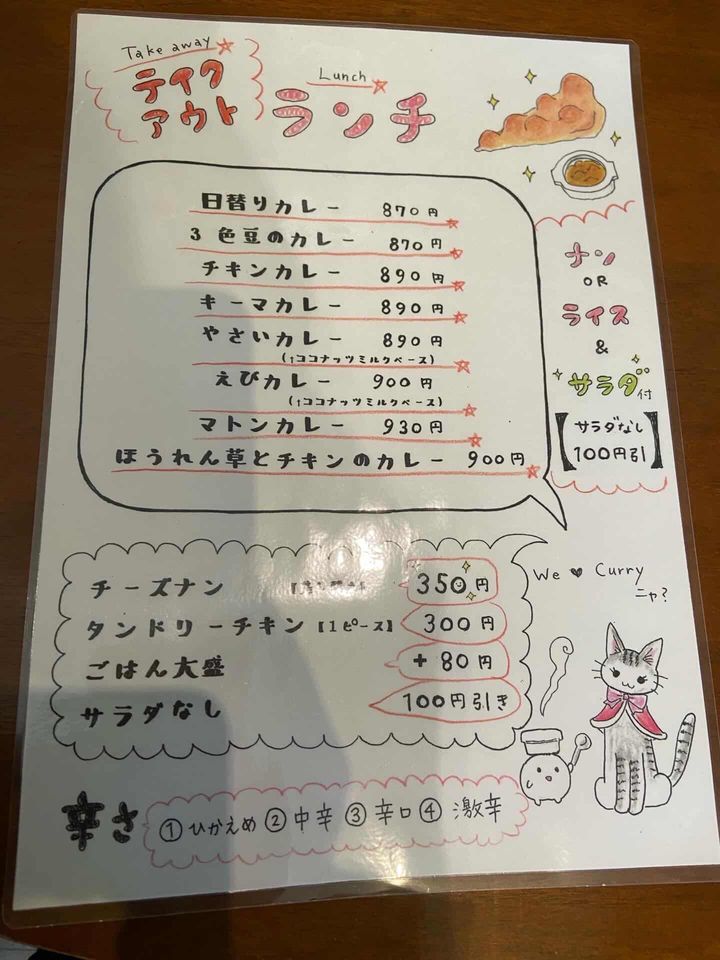 Take away
テイク
アウト
Lunch
ランチ
日替りカレー 870円
3色豆のカレー 870円
チキンカレー 890円
キーマカレー 890円
やさいカレー 890円
(↑ココナッツミルクベース)
えびカレー 900円
(↑ココナッツミルクベース)
マトンカレー 930円
ほうれん草とチキンのカレー 900円
ナン
OR
ライス
&
サラダ付
【サラダなし
100円引】
チーズナン 350円
タンドリーチキン【1ピース】 300円
ごはん大盛 +80円
サラダなし 100円引き
We ♥ Curry
ニャ?
辛さ ①ひかえめ ②中辛 ③辛口 ④激辛